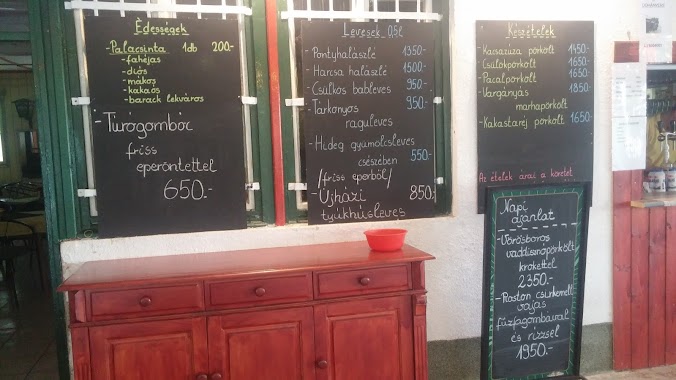 Édességek
-Palacsinta 1db 200.-
-fahéjas
-diós
-mákos
-kakaós
-barack lekváros
-Túrógombóc
friss
eperöntettel
650.-
Levesek 0,5 l
-Pontyhalászlé 1350.-
-Harcsa halászlé 1500.-
-Csülkös bableves 950.-
-Tárkonyos 950.-
raguleves
-Hideg gyümölcsleves
csészében 550.-
/friss eperből/
-Újházi 850.-
tyúkhúsleves
Készételek
-Kacsazúza pörkölt 1450.-
-Csülökpörkölt 1650.-
-Pacalpörkölt 1650.-
-Vargányás 1850.-
marhapörkölt
-Kakastaréj pörkölt 1650.-
Az ételek árai a köretet
Napi
ajánlat
-Vörösboros
vaddisznópörkölt
krokettel
2350.-
-Roston csirkemell
vajas
fűzfagombával
és rizzsel
1950.-